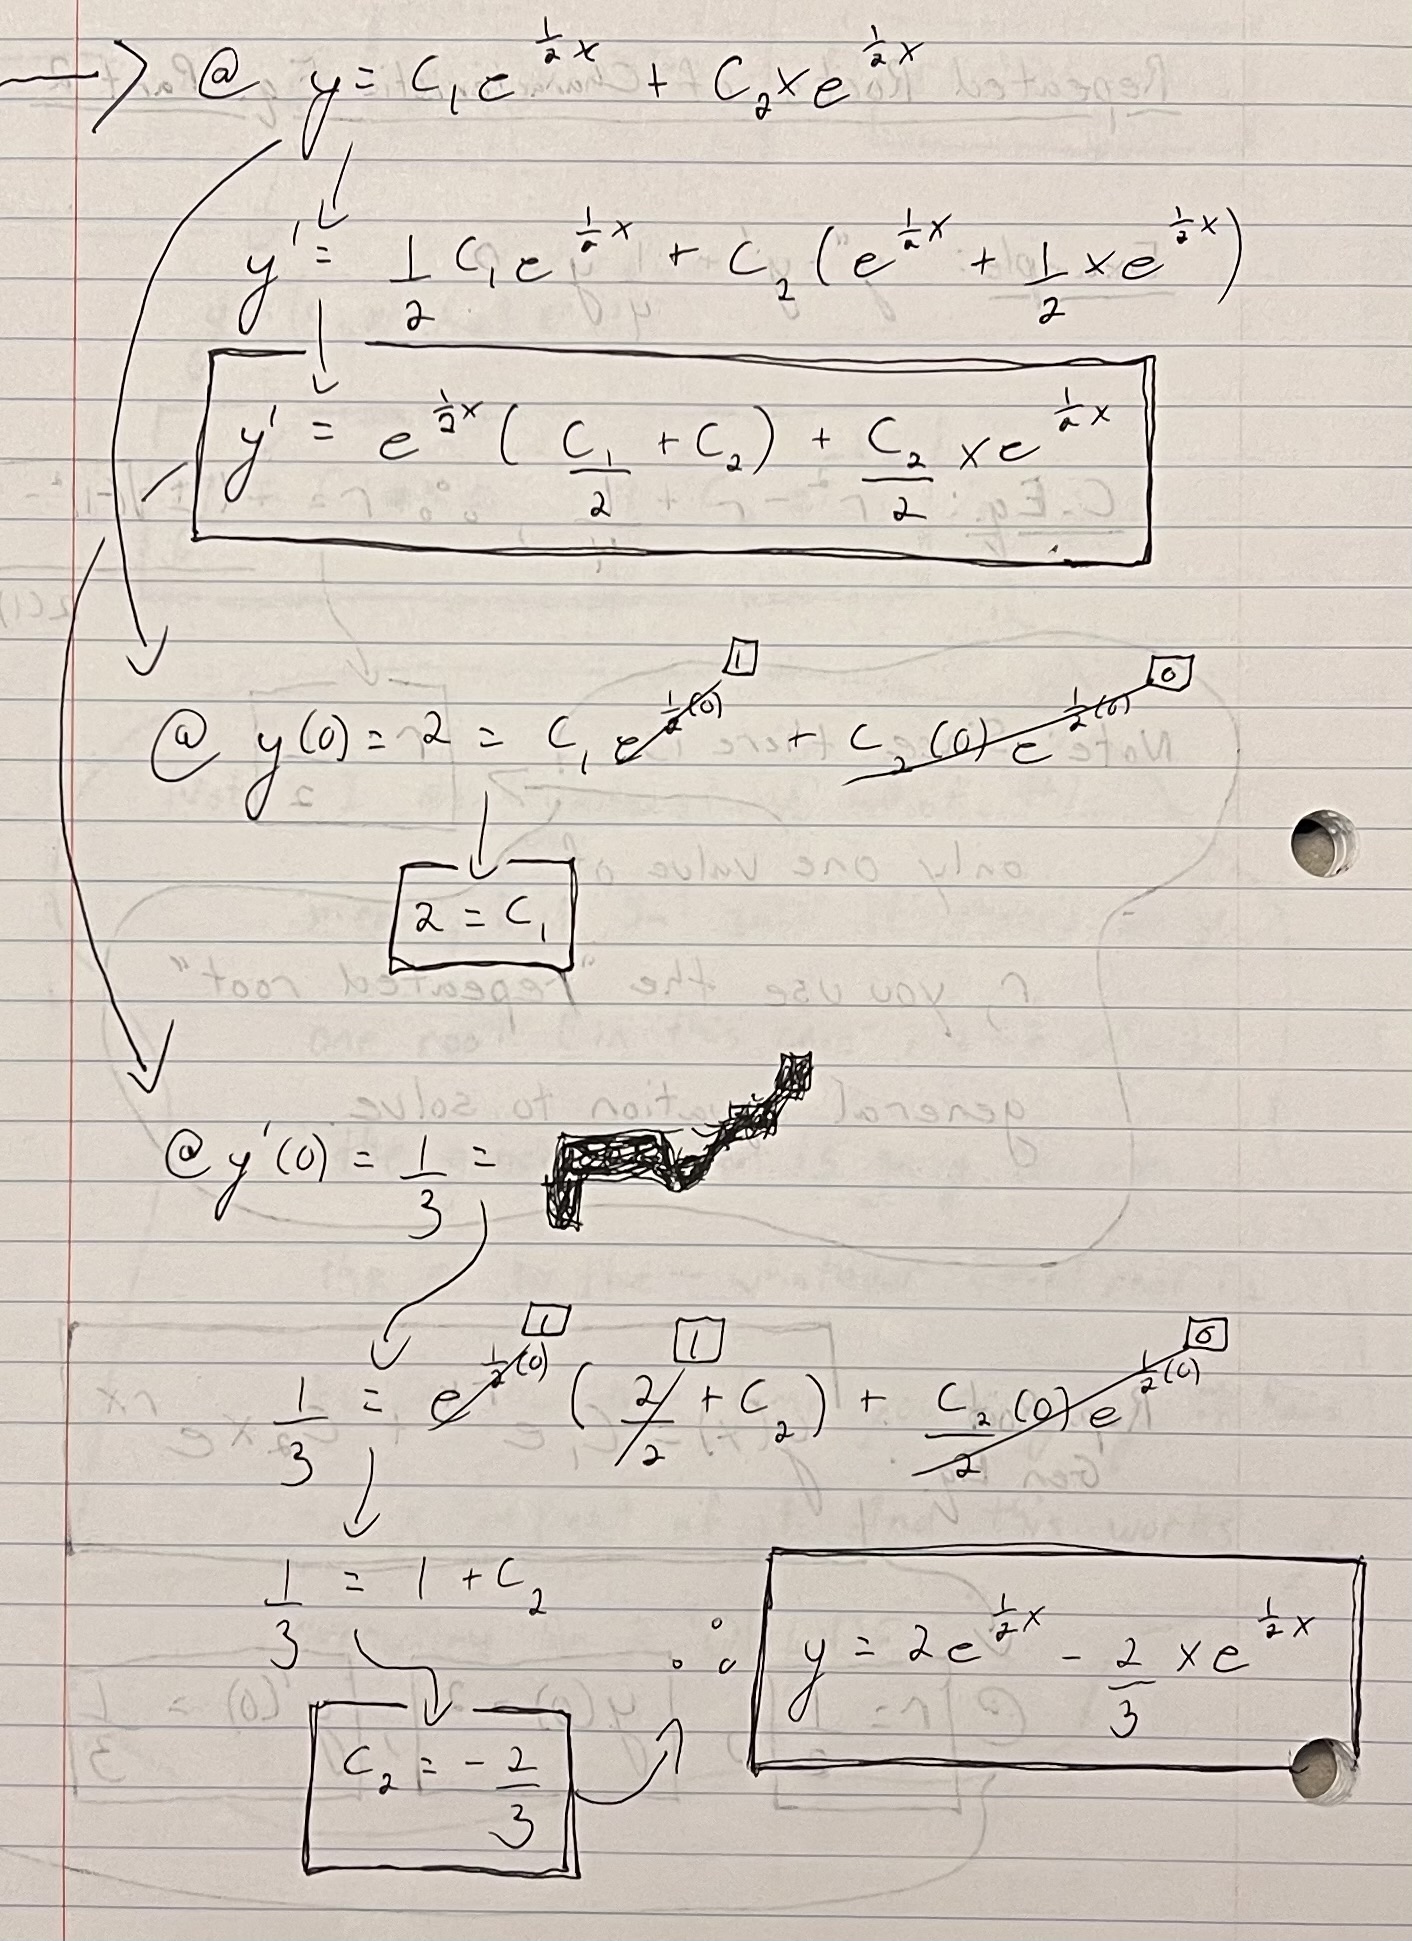 → @ y = C₁e^(½x) + C₂xe^(½x)
y' = 1/2 C₁e^(½x) + C₂(e^(½x) + 1/2 xe^(½x))
y' = e^(½x)(C₁/2 + C₂) + C₂/2 xe^(½x)
1 0
@ y(0) = 2 = C₁e^(½(0)) + C₂(0)e^(½(0))
2 = C₁
@ y'(0) = 1/3 =
1 1 0
1/3 = e^(½(0))(2/2 + C₂) + C₂/2 (0)e^(½(0))
1/3 = 1 + C₂
∴ y = 2e^(½x) - 2/3 xe^(½x)
C₂ = -2/3